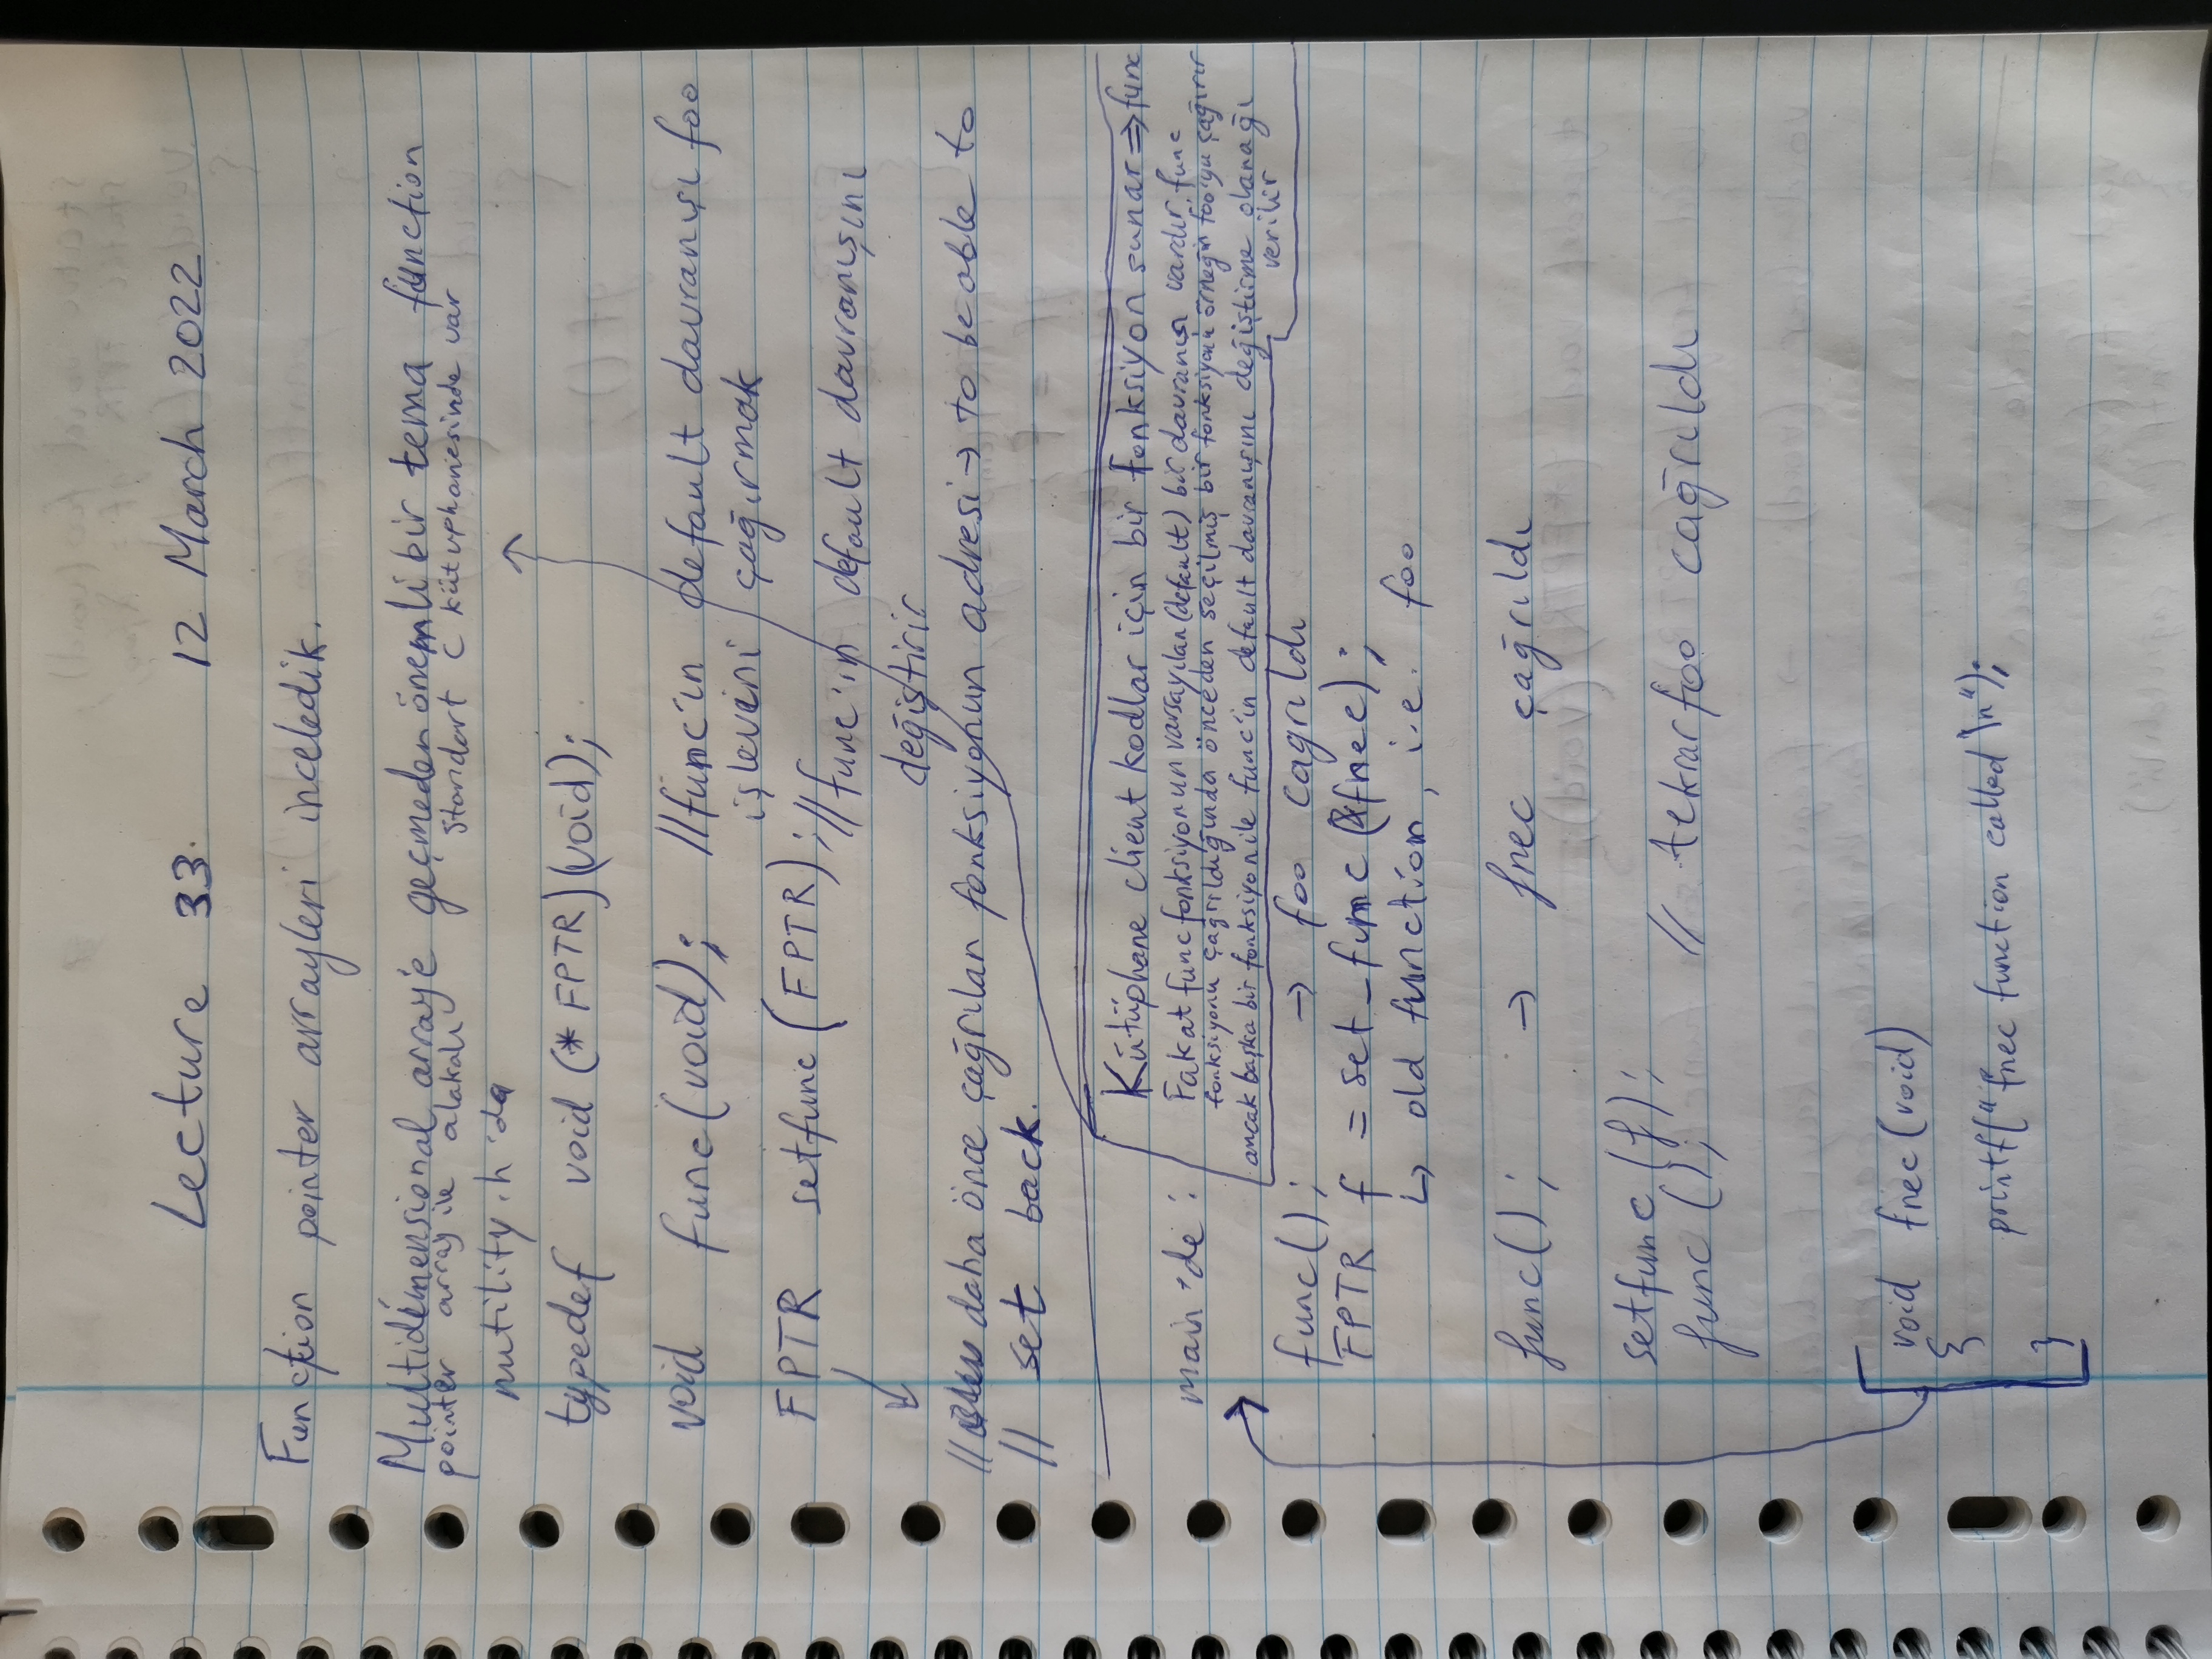 Lecture 33. 12 March 2022
Function pointer arrayleri inceledik.
Multidimensional array'e geçmeden önemli bir tema function
pointer array ile alakalı standart C kütüphanesinde var
nutility.h'da
typedef void (*FPTR)(void);
void func(void); //func'ın default davranışı foo
işlevini çağırmak
FPTR setfunc(FPTR); //func'ın default davranışını
değiştirir
// daha önce çağrılan fonksiyonun adresi → to be able to
// set back.
Kütüphane client kodlar için bir fonksiyon sunar ⇒ func
main'de :
Fakat func fonksiyonun varsayılan (default) bir davranışı vardır. func
fonksiyonu çağrıldığında önceden seçilmiş bir fonksiyonu örneğin foo'yu çağırır
ancak başka bir fonksiyon ile func'in default davranışını değiştirme olanağı
verilir
func(); → foo cagrıldı
FPTR f = set_func(&fnec);
↳ old function, i.e. foo
func(); → fnec çağrıldı
setfunc(f);
func(); // tekrar foo cağrıldı
void fnec(void)
{
printf("fnec function called \n");
}